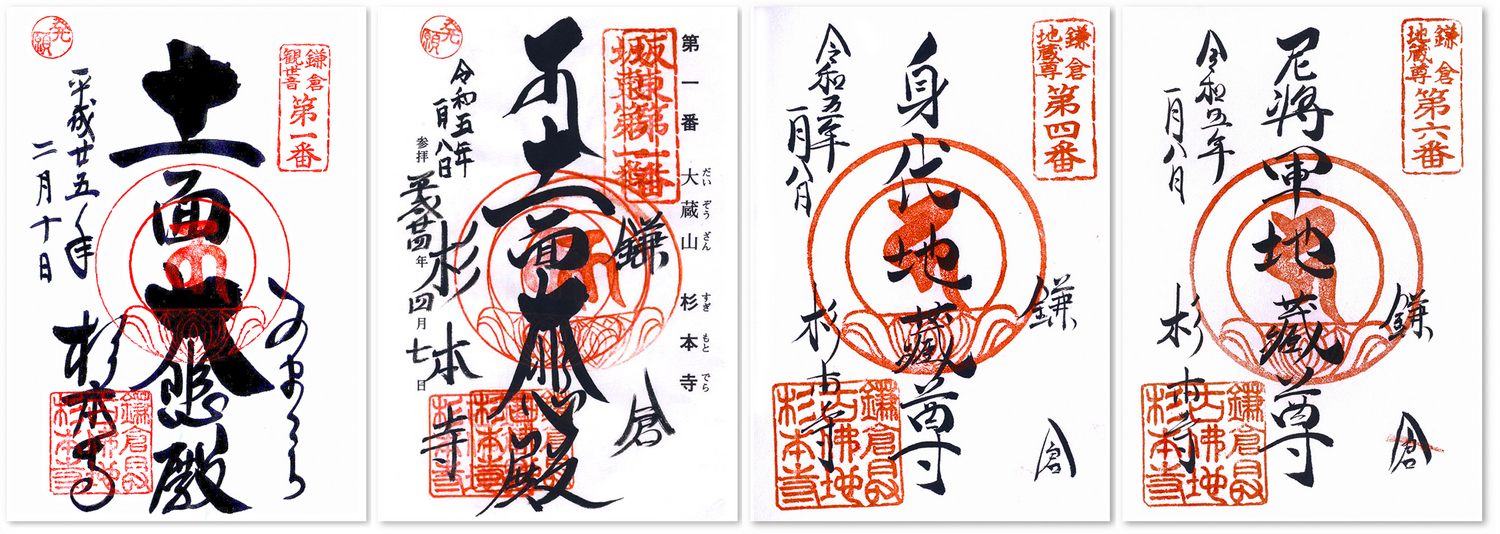 発願
鎌倉
観世音
第一番
十一面大悲殿
平成廿五年
二月十日
かまくら
杉本寺
鎌倉
杉本寺
発願
坂東第一番
第一番 大蔵山 杉本寺
だい ぞう ざん
すぎ もと でら
十一面大悲殿
令和五年
一月八日
参拝
平成廿四年四月七日
鎌倉
杉本寺
鎌倉
地蔵尊
第四番
身代地蔵尊
令和五年
一月八日
鎌倉
杉本寺
鎌倉
古佛地
杉本寺
鎌倉
地蔵尊
第六番
尼将軍地蔵尊
令和五年
一月八日
鎌倉
杉本寺
鎌倉
古佛地
杉本寺